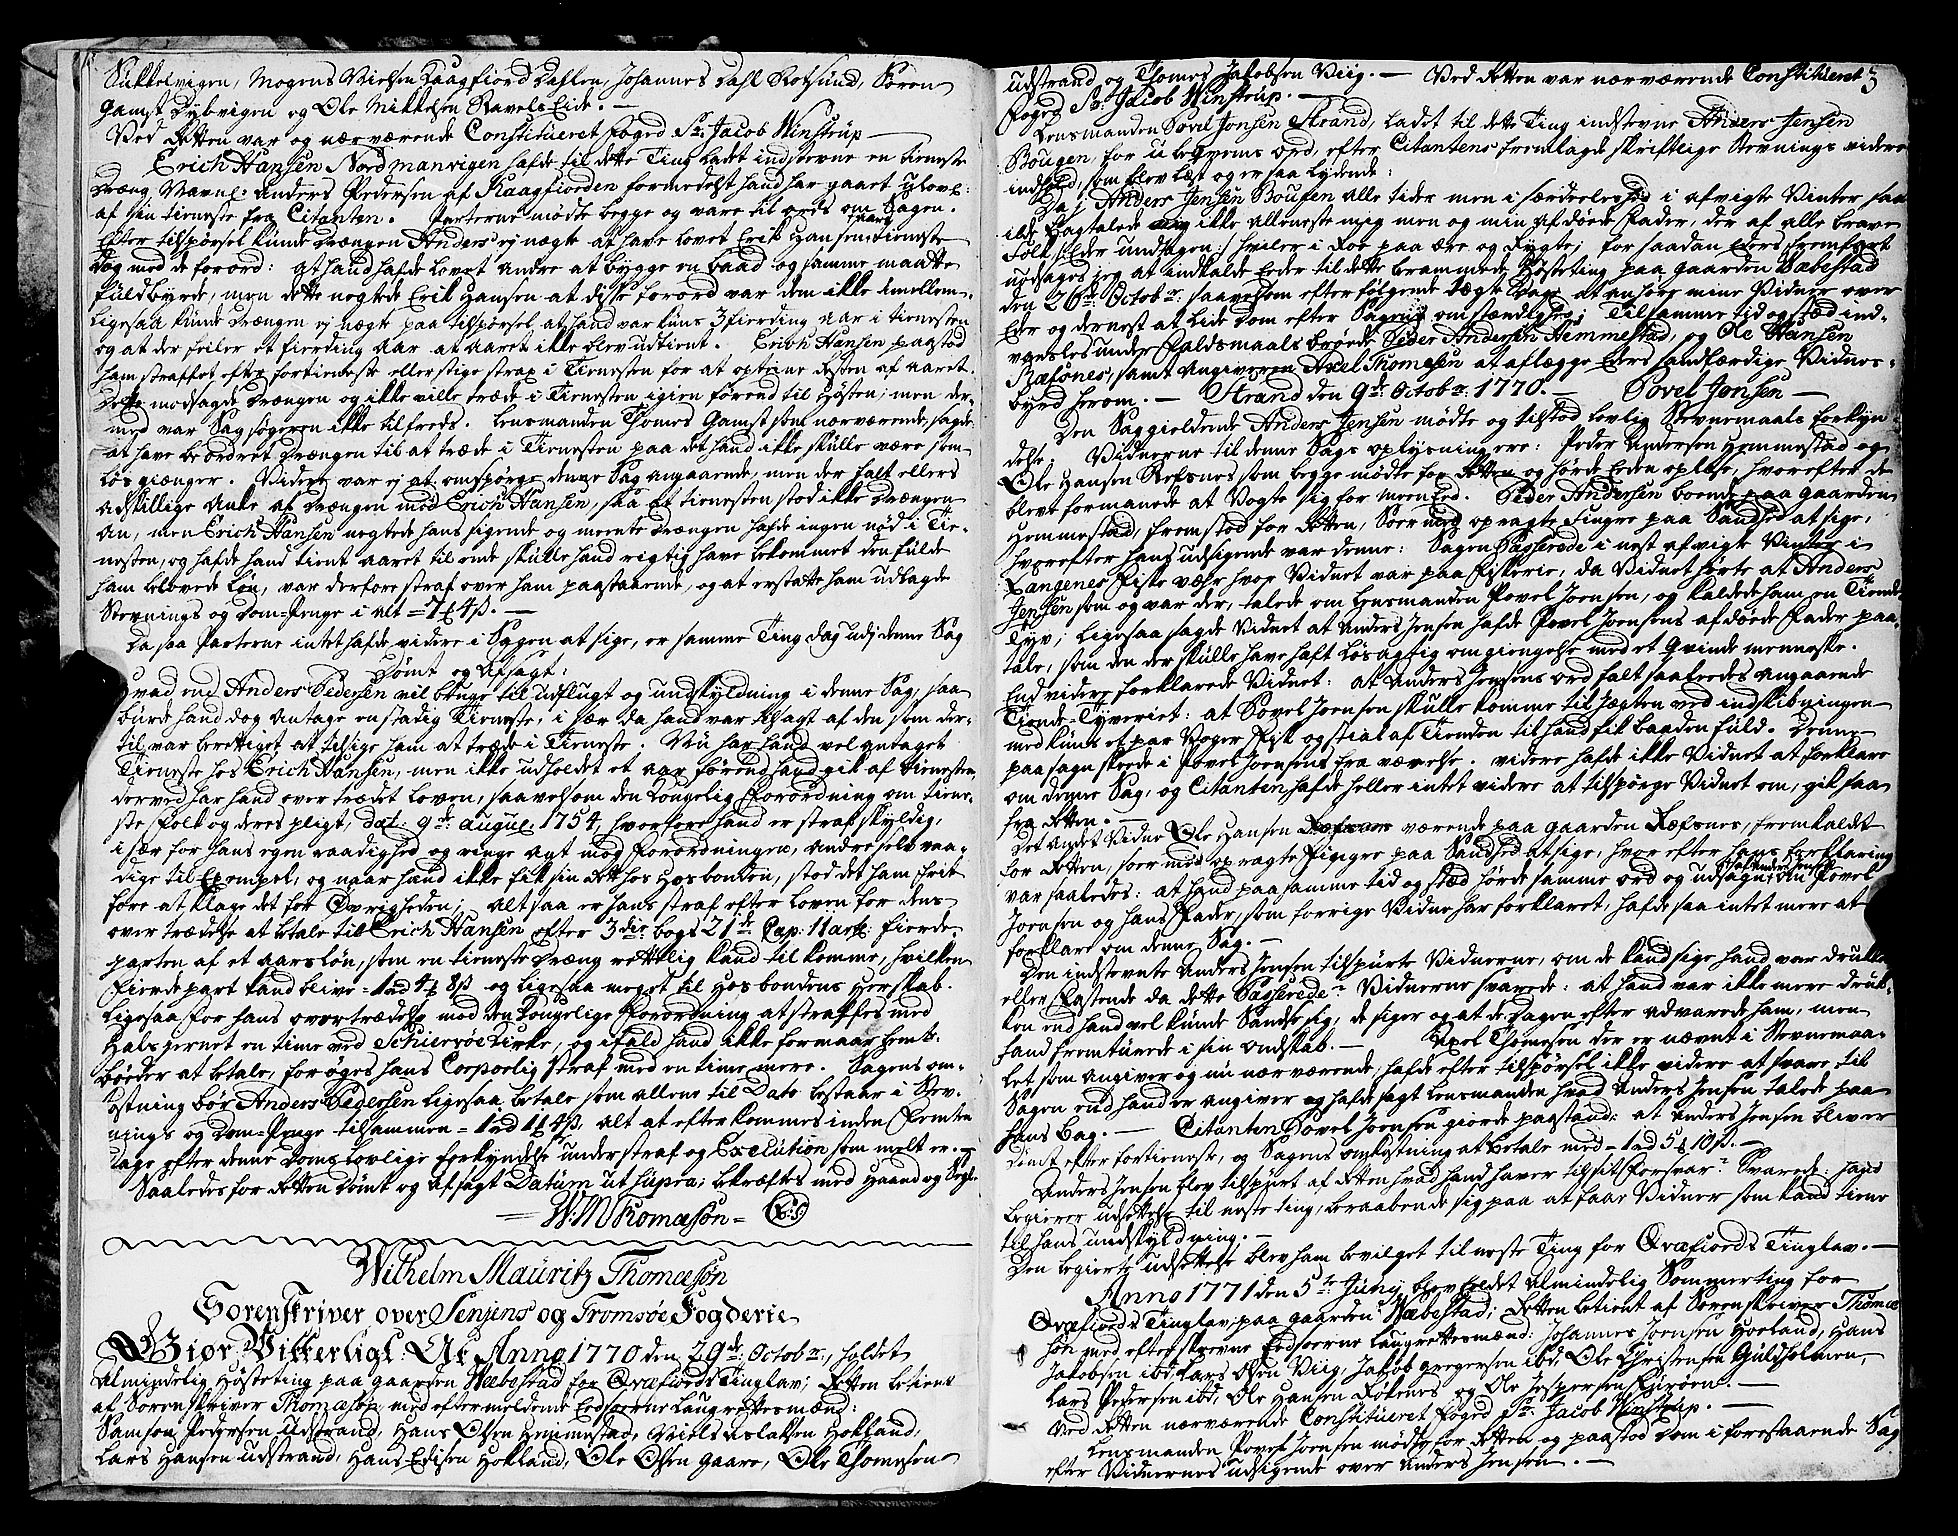 Sukkelvigen, Mogens Nielsen Kaagfiord Dahlen, Johannes Dahl Rotsund, Søren
Gamst Dybvigen og Ole Mikkelsen Ravels Eide. —
Ved Retten var og nærværende Constitueret foged Sr. Jacob Winstrup —
Erich Hansen Nordmanvigen hafde til dette Ting ladet indstevne en tieneste
Dræng Navnl: Anders Pedersen af Kaagfiorden formedelst hand har gaaet ulovl:
af sin tieneste fra Citanten. Parterne mødte begge og vare til ords om Sagen.
Efter tilspørsel kunde Drængen Anders ej nægte at have lovet Erik Hansen aars tieneste
dog med de forord: at hand hafde lovet andre at bygge en baad og samme maatte
fuldbyrde, men dette negtede Erik Hansen at disse forord var dem ikke imellem.
Ligesaa kunde Drængen ej nægte paa tilspørsel, at hand var kuns 3 fierding aar i tienesten
og at der feiler et fierding Aar at aaret ikke blev udtient. Erich Hansen paastod
ham straffet efter fortieneste eller stige strax i Tienesten for at optiene resten af aaret.
Dette modsagde Drængen og ikke ville træde i Tienesten igien førend til Høsten; men der-
med var Sagsøgeren ikke tilfreds. Lensmanden Thomes Gamst som nærværende, sagde
at have beordret Drængen til at træde i Tienesten paa det hand ikke skulle være som
løsgiænger. Videre var ej at omspørge denne Sag angaaende, men der falt ellers
adskillige Anke af Drængen mod Erich Hansen, saa at tienesten stod ikke Drængen
an, men Erich Hansen negtede hans sigende og meente Drængen hafde ingen nød i Tie-
nesten, og hafde hand tient aaret til ende skulle hand rigtig have bekommet den fulde
ham belovede Løn, var derfore straf over ham paastaaende, og at erstatte ham udlagde
Stevnings og Dom-Penge i alt = 7 ℔ 4 ß. —
Da saa Parterne intet hafde videre i Sagen at sige, er samme Ting dag udj denne Sag
Dømt og Afsagt,
Hvad end Anders Pedersen vil bruge til udflugt og undskyldning i denne Sag, saa
burde hand dog antage en stadig Tieneste, i sær da hand var tilsagt af den som der-
til var berettiget at tilsige ham at træde i Tieneste. Nu har hand vel antaget
Tieneste hos Erich Hansen, men ikke udholdet et aar førend hand gik af tienesten,
derved har hand over trædet Loven, saavelsom den Kongelig Forordning om tiene-
ste folk og deres pligt, dat: 9de august 1754, hvorfore hand er straf skyldig,
i sær for hans egen raadighed og ringe agt mod Forordningen, andre selv raa-
dige til Exempel, og naar hand ikke fik sin ret hos Hosbonden, stod det ham frit
fore at klage det for Øvrigheden; altsaa er hans straf efter Loven for dens
over trædelse at betale til Erich Hansen efter 3die bogs 21de Cap: 11 art: fierde
parten af et aarsløn, som en tieneste Dræng rettelig kand til komme, hvilken
fierde part kand blive = 1 rd 4 ℔ 8 ß og ligesaa meget til Hosbondens Herskab.
Ligesaa for hans overtrædelse mod den Kongelige Forordning at straffes med
Halsjernet en time ved Schiervøe Kirke, og i fald hand ikke formaar hente-
bøder at betale, forøges hans Corporlig straf med en time mere. Sagens om-
kostning bør Anders Pedersen ligesaa betale som allene til Dato bestaar i Stev-
nings og Dom-Penge tilsammen = 1 rd 1 ℔ 4 ß. alt at efterkommes inden Femten
dage efter denne Doms lovlige forkyndelse under straf og Execution som melt er. —
Saaledes for Retten Dømt og afsagt Datum ut supra, bekræftes med Haand og Segl.
= W: M Thomæsøn = (L:S:)
Wilhelm Mauritz Thomæsøn
Sorenskriver over Senjens og Tromsøe Fogderie
Giør Vitterligt: At Anno 1770 den 29de Octobr., holdet
Almindelig Høsteting paa gaarden Wæbestad for Qvæfiords Tinglav; Retten betient
af Sorenskriver Thomæsøn med efter meldende Eedsoerne Laugrettesmænd:
Samson Pedersen Udstrand, Hans Olsen Hemmestad, Niels Aslaksen Hokland,
Lars Hansen Udstrand, Hans Edisen Hokland, Ole Olsen Gaare, Ole Thomesen
3
Udstrand og Thomes Jakobsen Viig. — Ved Retten var nærværende Constitueret
foged Sr. Jacob Winstrup. —
Lensmanden Povel Jonsen Strand, ladet til dette Ting indstevne Anders Jensen
Bougen for ubeqvems ord, efter Citantens fremlagde skriftlige Stevnings videre
indhold, som blev læst og er saa lydende:
Da j Anders Jensen Bousen alle tider men i særdeleshed i afvigte Vinter saa
ilde bagtalede ikke alleneste mig men og min afdøde Fader, der af alle brave
Folk /:Eder undtagen:/ hviler i Roe paa ære og Rygte; for saadan Eders fremfart
nødsages jeg at indkalde Eeder til dette berammede Høsteting paa gaarden Wæbestad
den 26de Octobr. saavelsom efterfølgende Tægte Dage at anhøre mine Vidner over
Eder og dernest at lide Dom efter Sagens omstændighed; Til samme tid og stæd ind-
varsles under Faldsmaals brøde Peder Andersen Hemmestad, og Ole Hansen
Ræfsnes, samt Angiveren Axel Thomesen at aflægge Eders sandfærdige Vidnes-
byrd herom. — Strand den 9de Octobr. 1770. — Povel Jonsen —
Den Saggieldende Anders Jensen mødte og tilstod lovlig Stevnemaals forkyn-
delse. Vidnerne til denne Sags oplysning ere: Peder Andersen Hemmestad og
Ole Hansen Refsnes som begge mødte for Retten og hørde Eeden oplæse, hvorefter de
blev formanede at Vogte sig for meen Eed. Peder Andersen boende paa gaarden
Hemmestad, fremstod for Retten, Soer med opragte Fingre paa Sandhed at sige,
hvorefter hans udsigende var denne: Sagen Passerede i nest afvigte Vinter i
Langenes Fiske vær hvor Vidnet var paa Fiskerie, da Vidnet hørte at Anders
Jensen som og var der, talede om Lensmanden Povel Joensen, og kaldede ham en Tiende
Tyv; ligesaa sagde Vidnet at Anders Jensen hafde Povel Joensens afdøde Fader paa-
tale, som den der skulle have haft Løsagtig omgiengelse med et Qvinde menneske.
End videre forklarede Vidnet: at Anders Jensens ord falt saaledes angaaende
Tiende-Tyveriet: at Povel Joensen skulle komme til Jægten ved indskibningen
med kuns et par Voger Fisk og stial af Tienden til hand fik baaden fuld. Denne
paasagn skeede i Povel Joensens fra værelse. videre hafde ikke Vidnet at forklare
om denne Sag, og Citanten hafde heller intet videre at tilspørge Vidnet om, gik saa
fra Retten. —
Det andet Vidne Ole Hansen værende paa gaarden Refsnes, fremkaldet
for Retten, soer med opragte Fingre paa Sandhed at sige, hvor efter hans forklaring
var saaledes: at hand paa samme tid og stæd hørde samme ord og udsagn om Povel
Joensen og hans Fader, som forrige Vidne har forklaret, hafde saa intet mere at
forklare om denne Sag. —
Den indstevnte Anders Jensen tilspurte Vidnerne, om de kand sige hand var drukken
eller fastende da dette Passerede? Vidnerne svarede: at hand var ikke mere druk-
ken end hand vel kunde Sandse sig, de siger og at de Dagen efter advarede ham, men
hand fremturede i sin ondskab. — Axel Thomesen der er nævnt i Stevnemaa-
let som angiver og nu nærværende, hafde efter tilspørsel ikke videre at svare til
Sagen end hand er angiver og hafde sagt Lensmanden hvad Anders Jensen talede paa
hans bag. — Citanten Povel Joensen giorde paastand: at Anders Jensen bliver
dømt efter fortieneste, og Sagens omkostning at betale med = 1 rd 5 ℔ 10 ß. —
Anders Jensen blev tilspurt af Retten hvad hand haver til sit forsvar? Svarede: hand
begierer udsettelse til neste ting, beraabende sig paa at faae Vidner som kand tiene
til hans undskyldning. —
Den begierte udsettelse blev ham bevilget til neste Ting for Qvæfiords Tinglav. —
Anno 1771 den 5te Juny blev holdet almindelig Sommerting for
Qvæfiords Tinglav, paa gaarden Wæbestad; Retten betient af Sorenskriver Thomæ-
søn med efterskrevne Eedsoerne Laugrettesmænd: Johannes Joensen Hoeland, Hans
Jakobsen ibd, Lars Olsen Viig, Jakob gregersen ibd, Ole Christensen Guldholmen,
Lars Pedersen ibd, Ole Hansen Røkenes og Ole Jespersen Curøen. —
Ved Retten nærværende Constitueret foged Sr. Jacob Winstrup. —
Lensmanden Povel Joensen mødte for Retten og paastod Dom i forestaaende Sag
efter Vidnernes udsigende over Anders Jensen. —